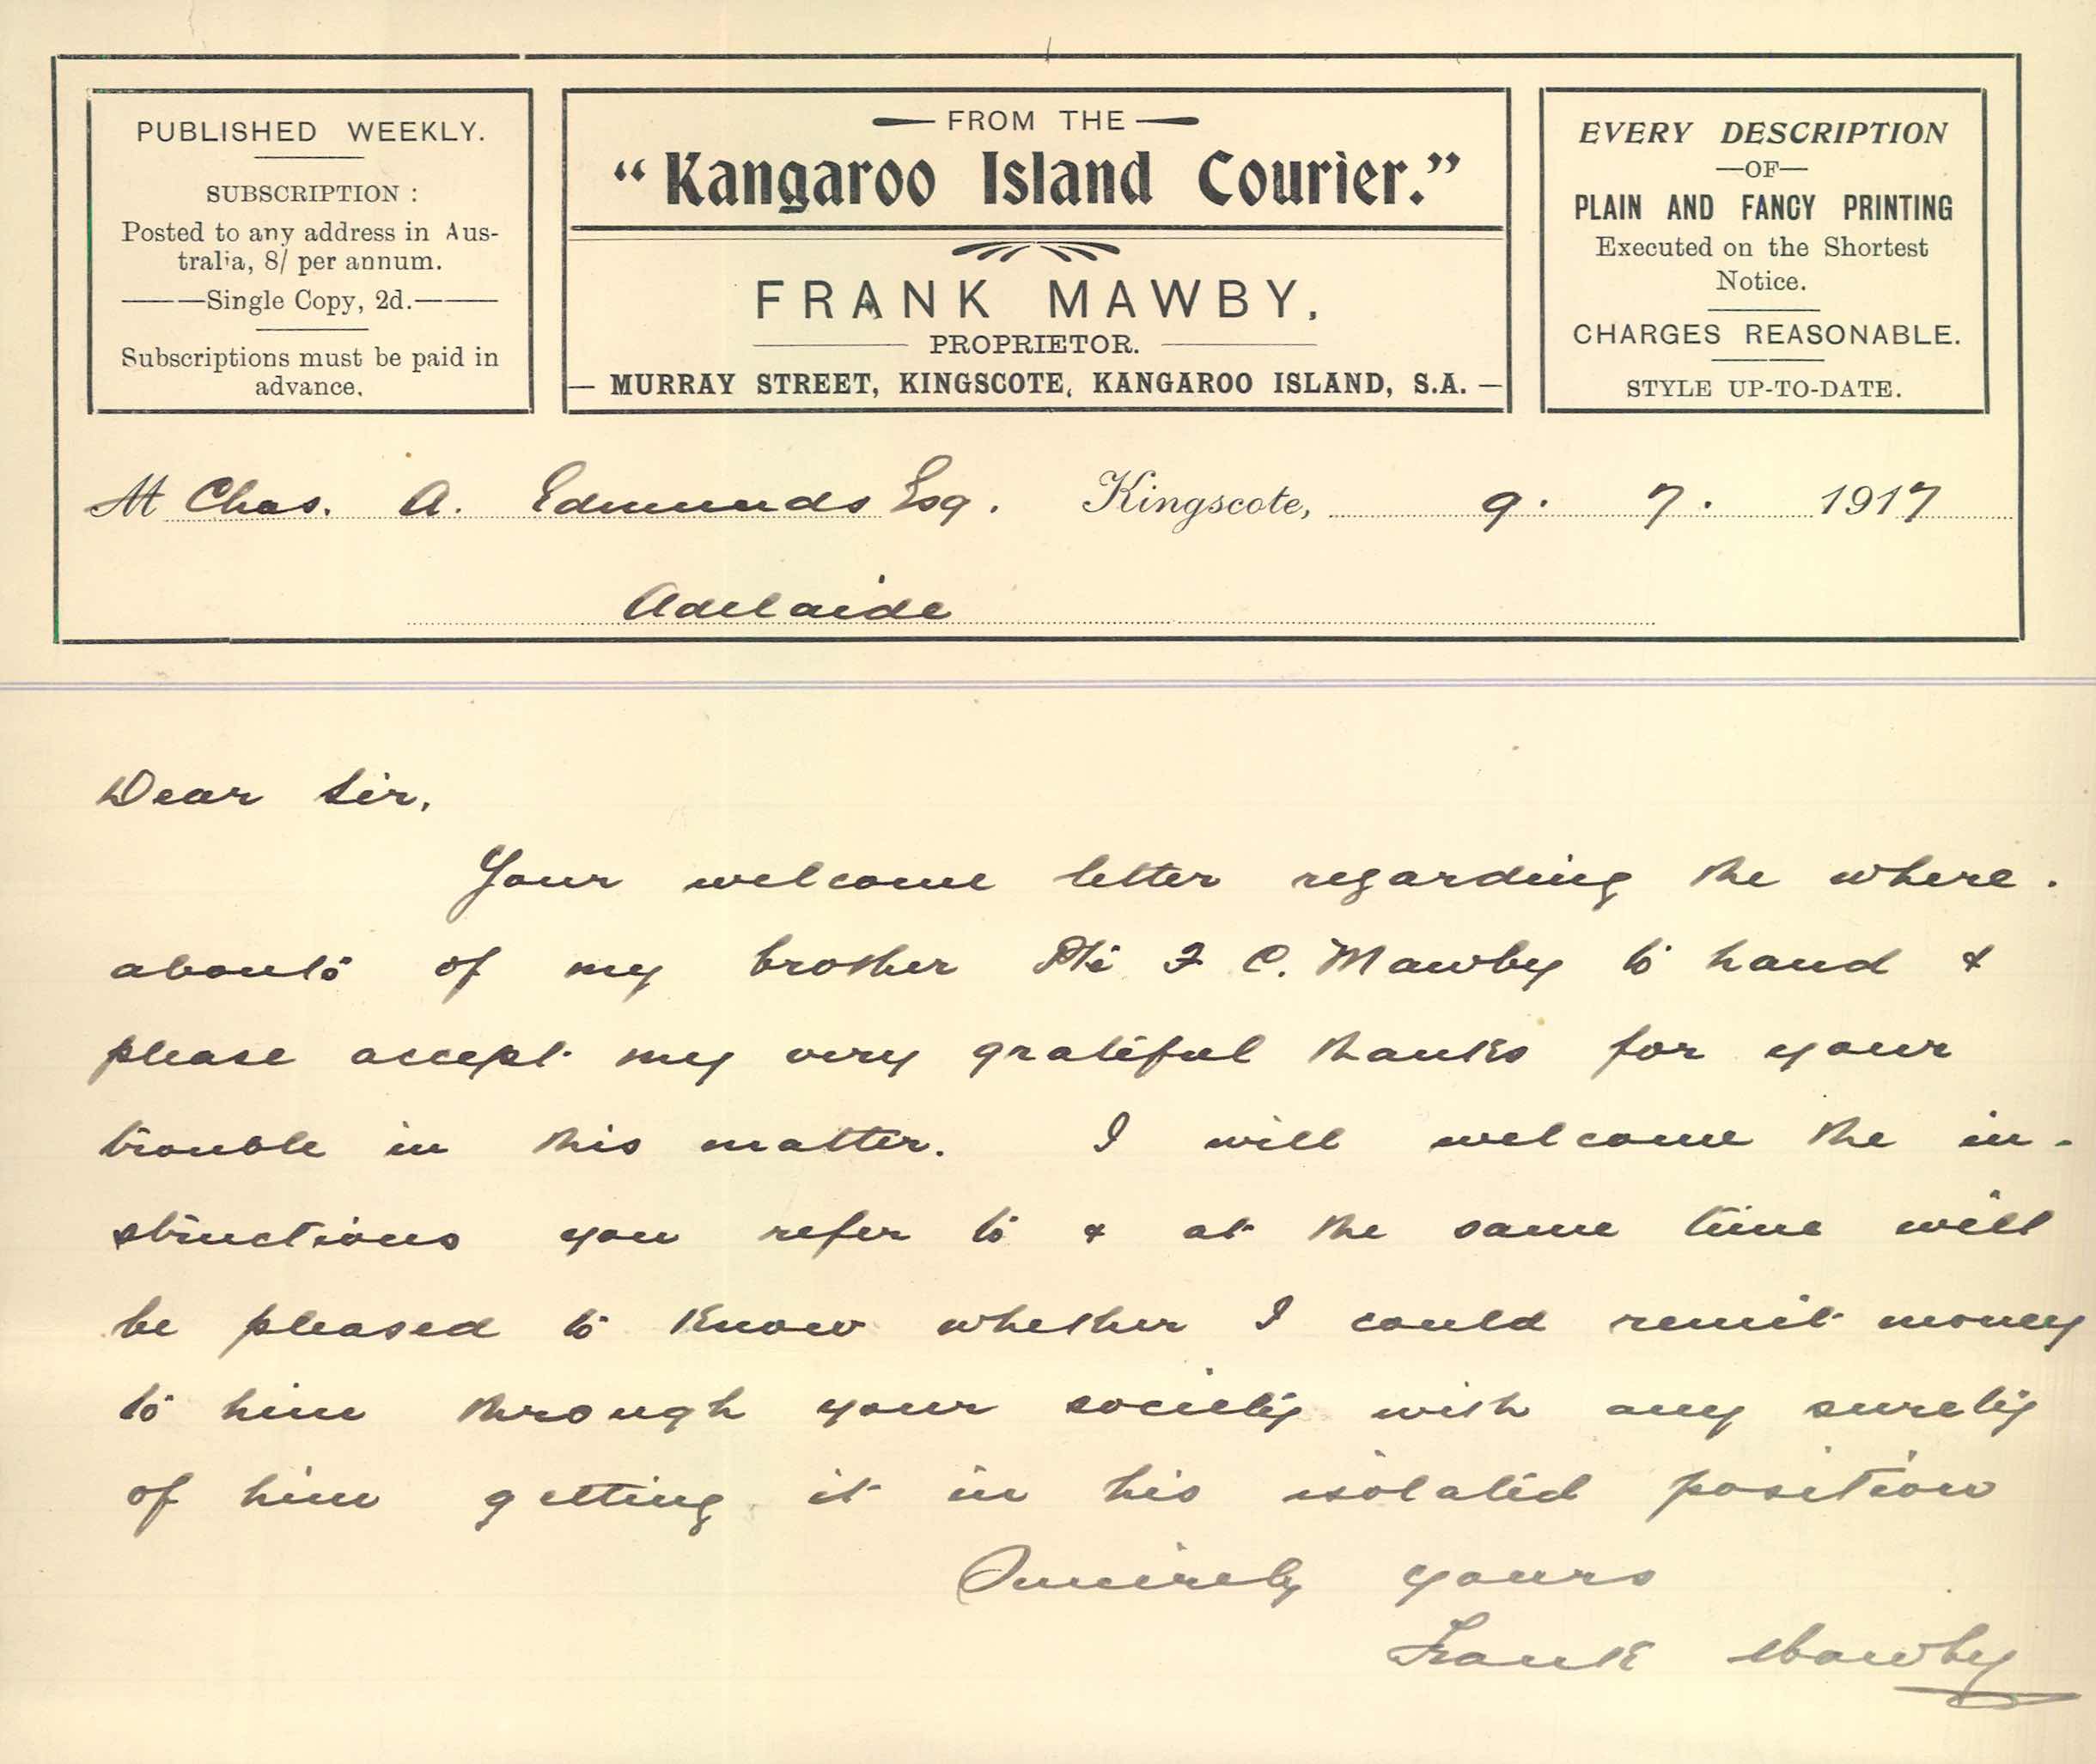 PUBLISHED WEEKLY.
SUBSCRIPTION :
Posted to any address in Aus-
tralia, 8/ per annum.
Single Copy, 2d.
Subscriptions must be paid in
advance.
FROM THE
"Kangaroo Island Courier."
FRANK MAWBY,
PROPRIETOR.
— MURRAY STREET, KINGSCOTE, KANGAROO ISLAND, S.A. —
EVERY DESCRIPTION
—OF—
PLAIN AND FANCY PRINTING
Executed on the Shortest
Notice.
CHARGES REASONABLE.
STYLE UP-TO-DATE.
M Chas. A. Edmunds Esq. Kingscote, 9. 7. 1917
Adelaide
Dear Sir,
Your welcome letter regarding the where-
abouts of my brother Pte F C. Mawby to hand &
please accept my very grateful thanks for your
trouble in this matter. I will welcome the in-
structions you refer to & at the same time will
be pleased to know whether I could remit money
to him through your society with any surety
of him getting it in his isolated position
Sincerely yours
Frank Mawby